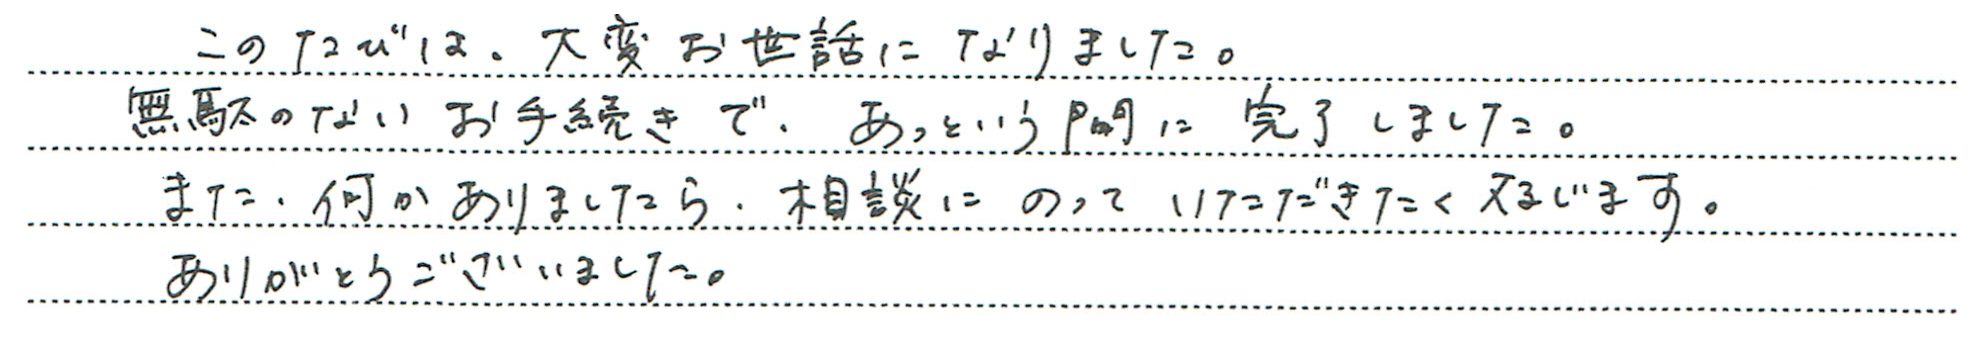 このたびは、大変お世話になりました。
無駄のないお手続きで、あっという間に完了しました。
また、何かありましたら、相談にのっていただきたく存じます。
ありがとうございました。